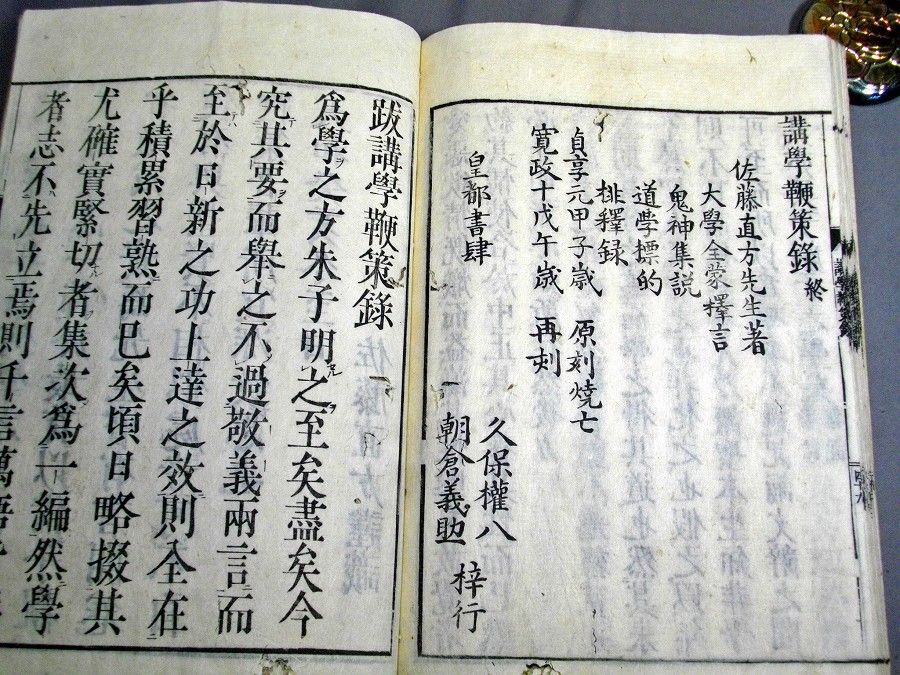 講學鞭策錄 終
佐藤直方先生著
大學全蒙擇言
鬼神集説
道学標的
排釋録
貞享元甲子歳 原刻燒亡
寛政十戊午歳 再刻
皇都書肆
久保權八
朝倉義助
梓行
跋講學鞭策錄
爲學之方朱子明之至矣盡矣今
究其要而舉之不過敬義兩言而
至於日新之功上達之效則全在
乎積累習熟而已矣頃日略掇其
尤確實緊切者集次爲一編然學
者志不先立焉則千言萬語